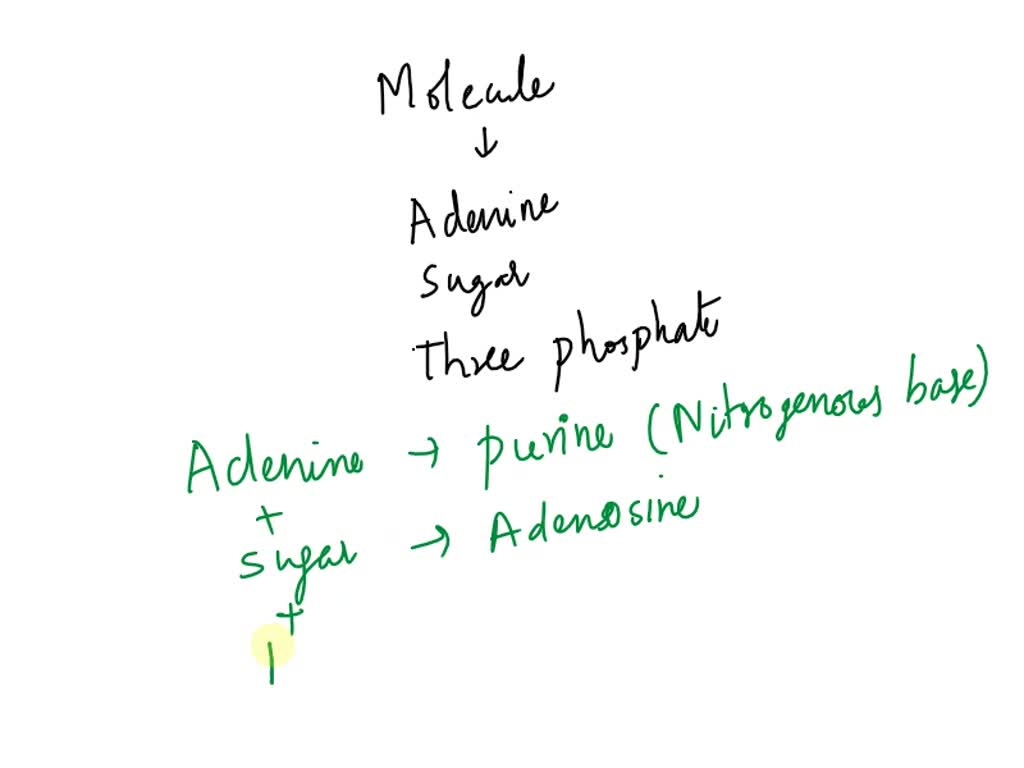 Molecule
↓
Adenine
Sugar
Three phosphate
Adenine → purine (Nitrogenous base)
+
sugar → Adenosine
+